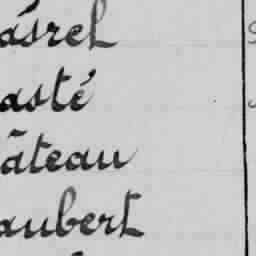 asrel
asté
âteau
aubert